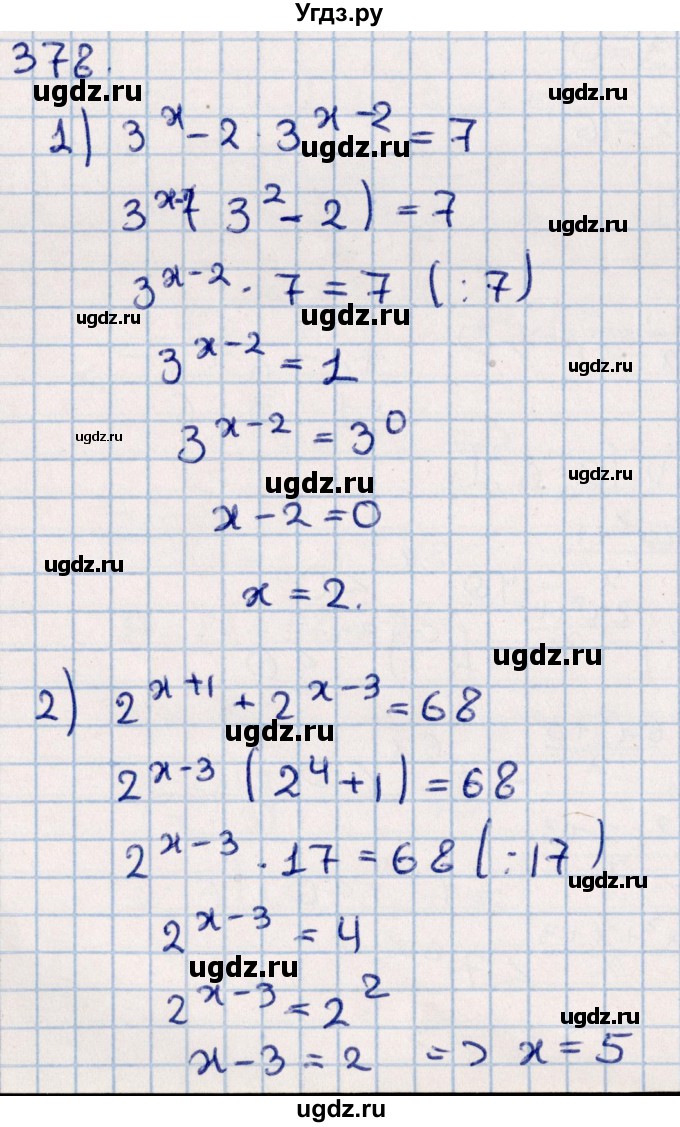 Угдз.ру
378.
ugdz.ru ugdz.ru
1) 3^x - 2 · 3^(x-2) = 7
ugdz.ru
3^(x-2) ( 3^2 - 2 ) = 7
ugdz.ru
3^(x-2) · 7 = 7 (:7)
ugdz.ru ugdz.ru
3^(x-2) = 1
ugdz.ru
3^(x-2) = 3^0
ugdz.ru
ugdz.ru ugdz.ru
x - 2 = 0
ugdz.ru
x = 2.
ugdz.ru
2) 2^(x+1) + 2^(x-3) = 68
ugdz.ru
2^(x-3) ( 2^4 + 1 ) = 68
2^(x-3) · 17 = 68 (:17)
ugdz.ru
2^(x-3) = 4
ugdz.ru
2^(x-3) = 2^2
ugdz.ru
x - 3 = 2 => x = 5
ugdz.ru